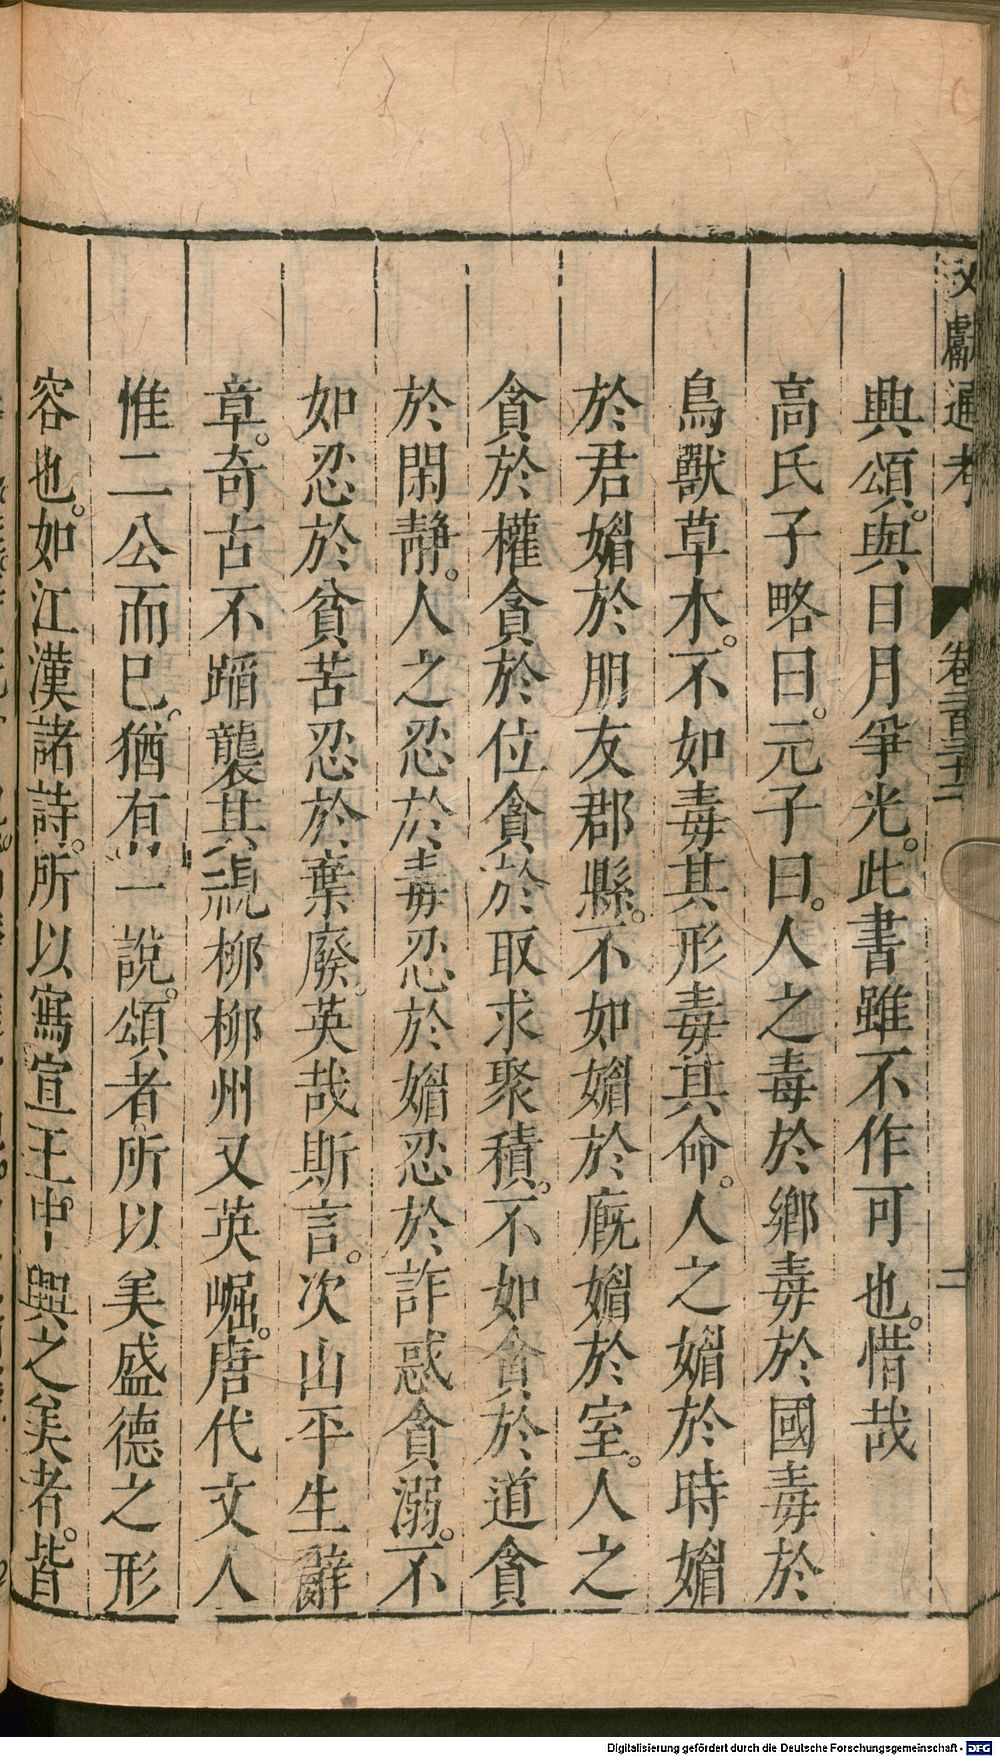 文獻通考 卷二百三十二 二
興頌。與日月爭光。此書雖不作可也。惜哉
高氏子略曰。元子曰。人之毒於鄉毒於國毒於
鳥獸草木。不如毒其形毒其命。人之媚於時媚
於君媚於朋友郡縣。不如媚於廐媚於室。人之
貪於權貪於位貪於取求聚積。不如貪於道貪
於閑靜。人之忍於毒忍於媚忍於詐惑貪溺。不
如忍於貧苦忍於棄廢。英哉斯言。次山平生辭
章。奇古不蹈襲其視柳柳州又英崛。唐代文人
惟二公而已。猶有一說。頌者所以美盛德之形
容也。如江漢諸詩。所以寫宣王中興之美者。皆
Digitalisierung gefördert durch die Deutsche Forschungsgemeinschaft - DFG